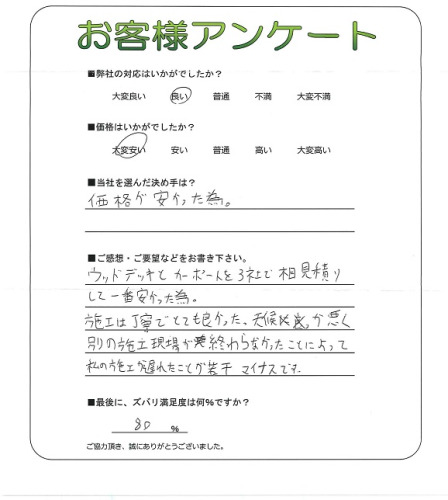 お客様アンケート
■弊社の対応はいかがでしたか？
大変良い 良い 普通 不満 大変不満
■価格はいかがでしたか？
大変安い 安い 普通 高い 大変高い
■当社を選んだ決め手は？
価格が安かった為。
■ご感想・ご要望などをお書き下さい。
ウッドデッキとカーポートを3社で相見積り
して一番安かった為。
施工は丁寧でとても良かった、天候が悪く
別の施工現場が終わらなかったことによって
私の施工が遅れたことが若干マイナスです。
■最後に、ズバリ満足度は何%ですか？
80 %
ご協力頂き、誠にありがとうございました。